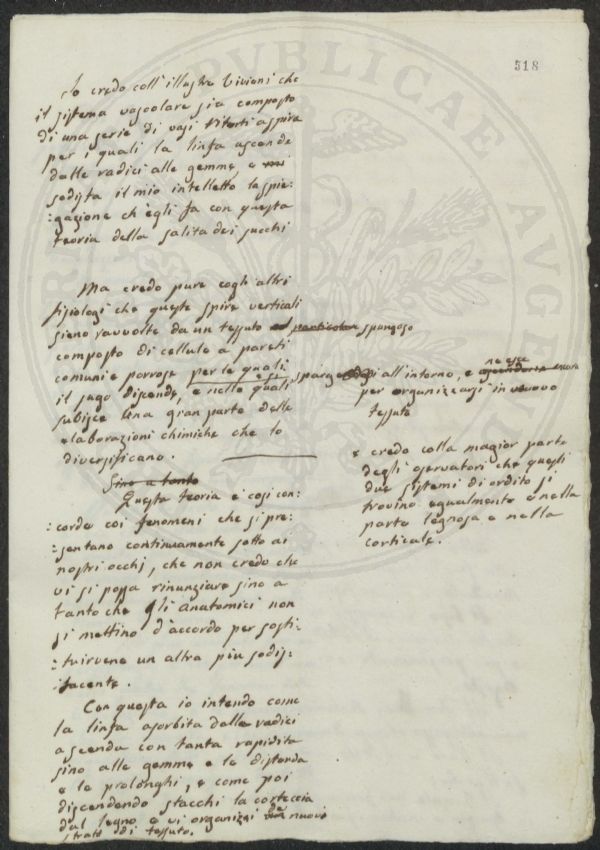 518
Io credo coll'illustre Viviani che
il sistema vascolare sia composto
di una serie di vasi ritorti a spira
per i quali la linfa ascende
dalle radici alle gemme, e
sodisfa il mio intelletto la spie:
:gazione ch'egli fa con questa
teoria della salita dei succhi
Ma credo pure cogli altri
fisiologi che queste spire verticali
sieno ravvolte da un tessuto particolar spongoso
composto di cellule a pareti
comuni e porrose per le quali
il sugo discende, e si sparge all'intorno, e ne esce
e nelle quali
per organizzarsi in nuovo
tessuto
subisce una gran parte delle
elaborazioni chimiche che lo
diversificano.
e credo colla magior parte
degli osservatori che questi
due sistemi di ordito si
trovino egualmente e nella
parte legnosa e nella
corticale.
Sino a tanto
Questa teoria è così con:
:corde coi fenomeni che si pre:
:sentano continuamente sotto ai
nostri occhj, che non credo che
vi si possa rinunziare sino a
tanto che gli anatomici non
si mettino d'accordo per sosti:
:tuirvene un altra più sodisf:
:facente.
Con questa io intendo come
la linfa assorbita dalle radici
ascenda con tanta rapidità
sino alle gemme e le distenda
e le prolonghi, e come poi
discendendo stacchi la corteccia
dal legno e vi organizzi nuovi
strati di tessuto.